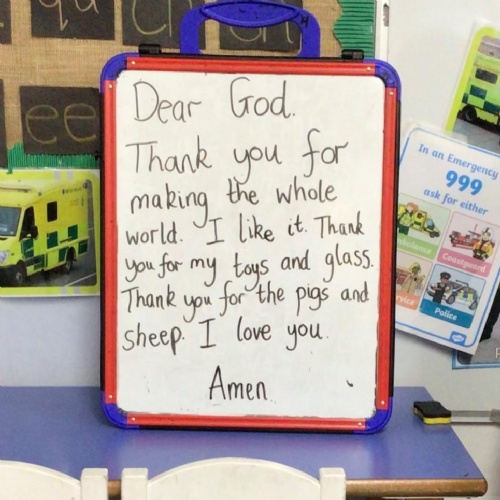 qu
ch
ee
Dear God.
Thank you for
making the whole
world. I like it. Thank
you for my toys and glass.
Thank you for the pigs and
sheep. I love you.
Amen
In an Emergency
999
ask for either
Coastguard
Police